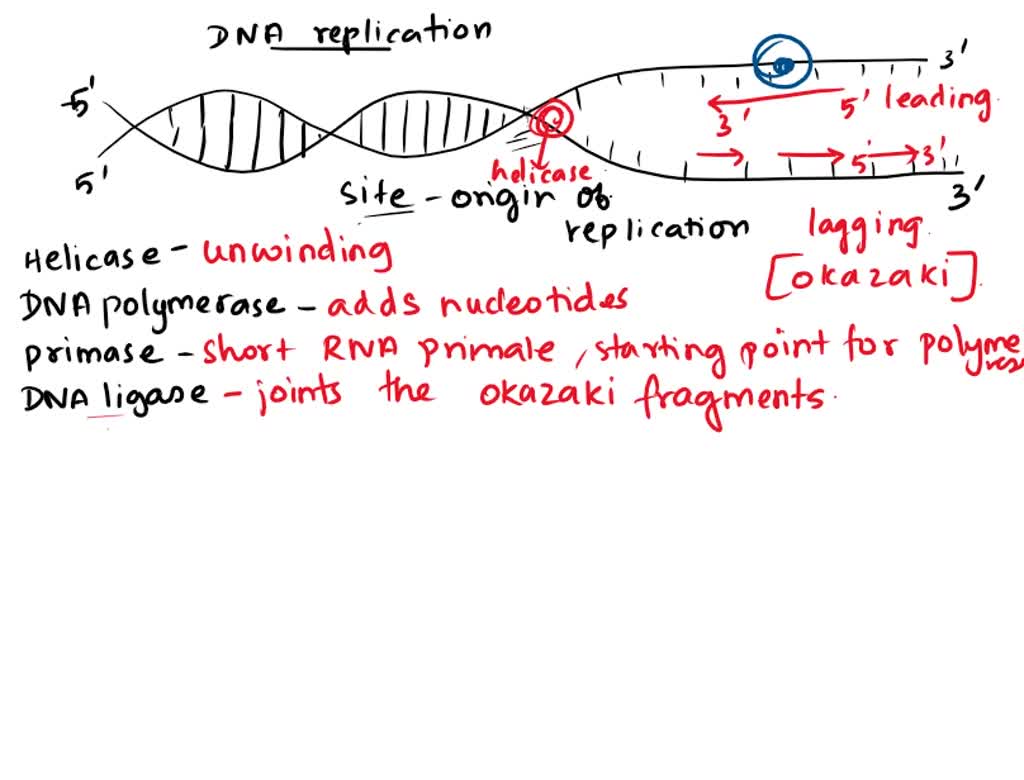 DNA replication
5'
3'
3'
5' leading
5'
3'
helicase
5'
3'
site - origin of
replication
lagging
[okazaki].
Helicase - unwinding
DNA polymerase - adds nucleotides
primase - short RNA primale, starting point for polyme
DNA ligase - joints the okazaki fragments.